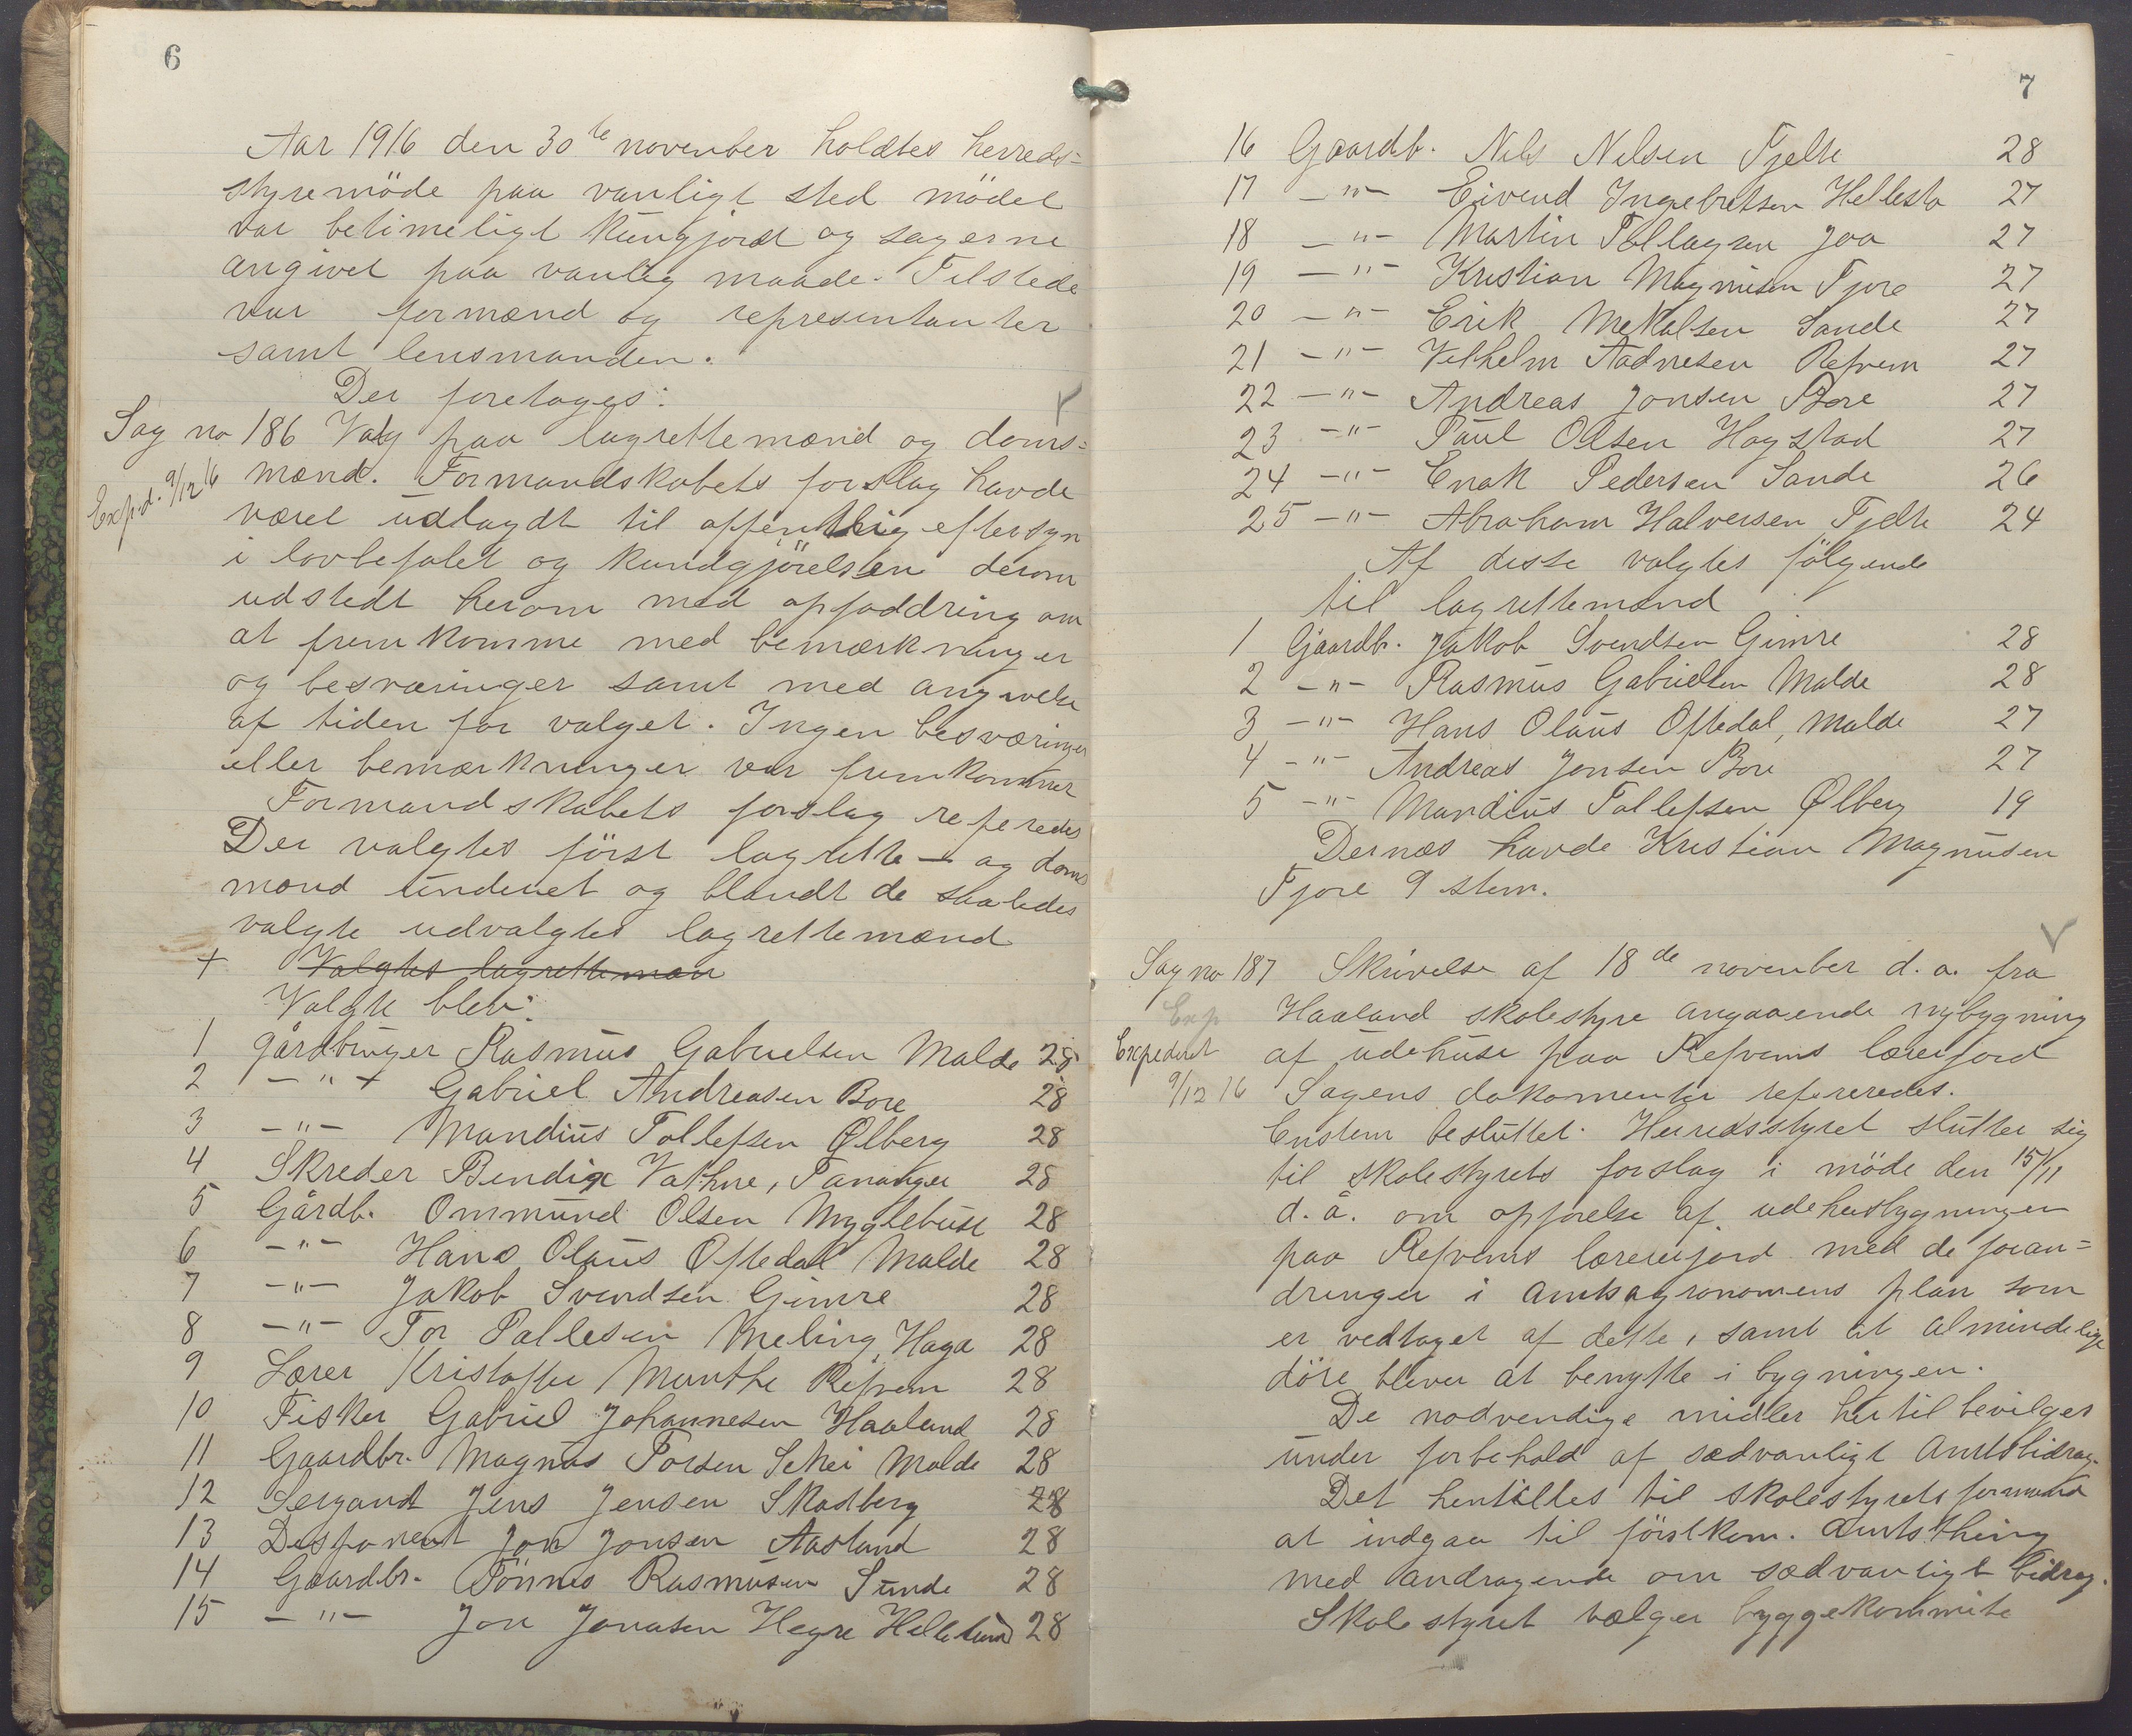 6
Aar 1916 den 30te november holdtes herreds-
styremöde paa vanligt sted mödet
var betimeligt kungjordt og sagerne
angivet paa vanlig maade. Tilstede
var formænd og representanter
samt lensmanden.
Der foretoges:
Sag no 186 Valg paa lagrettemænd og doms-
Exp.d. 9/12 16 mænd. Formandskabets forslag havde
været udlagdt til offentlig eftersyn
i lovbefalet og kundgjörelsen derom
udstedt herom med opfoddring om
at fremkomme med bemærkninger
og besværinger samt med angivelse
af tiden for valget. Ingen besværinger
eller bemærkninger var fremkommet
Formandskabets forslag referedes
Der valgtes först lagrette- og doms
mænd underet og blandt de saaledes
valgte udvalgtes lagrettemænd
+ Valgtes lagrettemæn
Valgte blev:
1 gårdbruger Rasmus Gabrielsen Malde 28
2 -"- + Gabriel Andreasen Bore 28
3 -"- Mandius Tollefsen Ølberg 28
4 Skreder Bendix Vathne, Tananger 28
5 Gårdb. Ommund Olsen Myglebust 28
6 -"- Hans Olaus Oftedal Malde 28
7 -"- Jakob Svendsen Gimre 28
8 -"- Tor Pallesen Meling, Haga 28
9 Lærer Kristoffer Munthe Refvem 28
10 Fisker Gabriel Johannesen Haaland 28
11 Gaardbr. Magnus Torsen Skei Malde 28
12 Sergant Jens Jensen Skadberg 28
13 Disponent Jon Jonsen Aasland 28
14 Gaardbr. Tönnes Rasmusen Sunde 28
15 -"- Jon Jonasen Hegre Hellelund 28
7
16 Gaardb. Nils Nilsen Tjelte 28
17 -"- Eivend Ingebretsen Hellestø 27
18 -"- Martin Tollagsen Joa 27
19 -"- Kristian Magnusen Tjore 27
20 -"- Erik Mekalsen Sande 27
21 -"- Vilhelm Aadnesen Refvem 27
22 -"- Andreas Jonsen Bore 27
23 -"- Paul Olsen Hogstad 27
24 -"- Enok Pedersen Sande 26
25 -"- Abraham Halvorsen Tjelte 24
Af disse valgtes fölgende
til lagrettemænd
1 Gaardb. Jakob Svendsen Gimre 28
2 -"- Rasmus Gabrielsen Malde 28
3 -"- Hans Olaus Oftedal, Malde 27
4 -"- Andreas Jonsen Bore 27
5 -"- Mandius Tollefsen Ølberg 19
Dernæs havde Kristian Magnusen
Tjore 9 stem.
Sag no 187 Skrivelse af 18de november d.a. fra
Exp Haaland skolestyre angaaende nybygning
Expederet af udehuse paa Refvems lærerjord
9/12 16 Sagens dokomenter refereredes.
Enstem besluttet: Herredsstyret slutter sig
til skolestyrets forslag i möde den 15/11
d.å. om opförelse af udehusbygninger
paa Refvems lærererjord med de foran-
dringer i amtsagronomens plan som
er vedtaget af dette, samt at almindelige
döre bliver at benytte i bygningen.
De nodvendige midler hertil bevilges
under forbehold af sædvanligt Amtsbidrag.
Det henstilles til skolestyrets formand
at indgaa til förstkom. Amtsthing
med andragende om sædvanligt bidrag.
Skolestyret vælger byggekommite